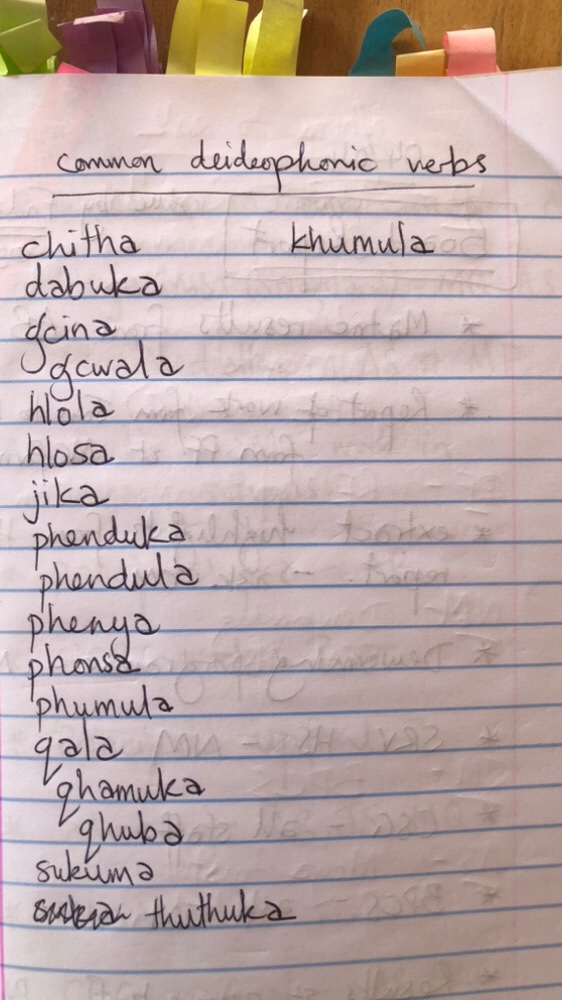 common deideophonic verbs
chitha khumula
dabuka
gcina
gcwala
hlola
hlosa
jika
phenduka
phendula
phenya
phonsa
phumula
qala
qhamuka
qhuba
sukuma
thuthuka